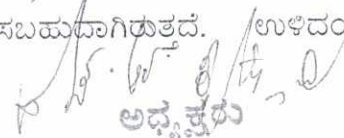 ಸಬಹುದಾಗಿರುತ್ತದೆ. ಉಳಿದಂ
ಅಧ್ಯಕ್ಷರು